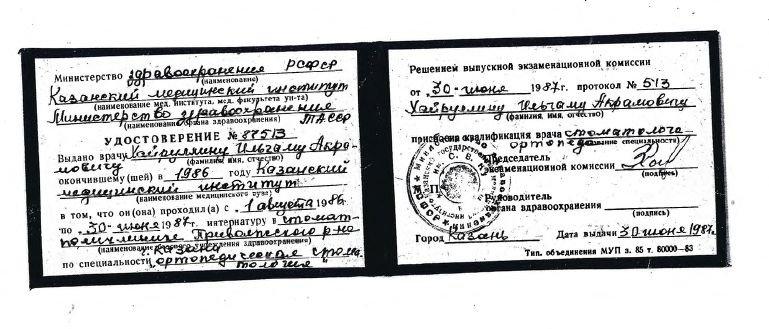 Министерство здравоохранения РСФСР
(наименование)
Казанский медицинский институт
(наименование мед. института, мед. факультета ун-та)
Министерство здравоохранения
(наименование органа здравоохранения) ТАССР
УДОСТОВЕРЕНИЕ № 87513
Выдано врачу Хайруллину Ильгаму Акра-
мовичу (фамилия, имя, отчество)
окончившему(шей) в 1986 году Казанский
медицинский институт
(наименование медицинского вуза)
в том, что он(она) проходил(а) с 1 августа 1986
по 30 июня 1987г. интернатуру в стомат.
поликлинике Приволжского р-на
(наименование учреждения здравоохранения)
г. Казани
по специальности „ортопедическая стома
тология"
Решением выпускной экзаменационной комиссии
от 30 июня 1987г. протокол № 513
Хайруллину Ильгаму Акрамовичу
(фамилия, имя, отчество)
присвоена квалификация врача стоматолога-
ортопеда (название специальности)
Председатель
экзаменационной комиссии
(подпись)
М. П.
Руководитель
органа здравоохранения
(подпись)
Город Казань Дата выдачи 30 июня 1987г.
Тип. объединения МУП з. 85 т. 80000—83